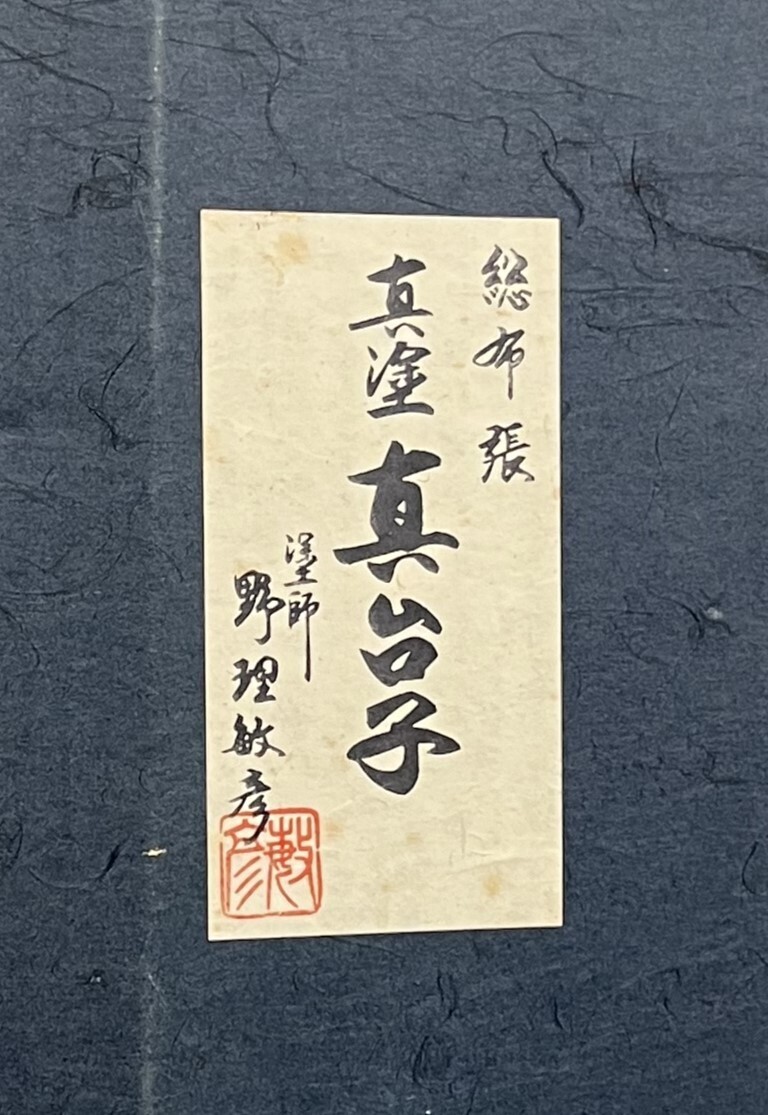 総布張
真塗 真台子
塗師
野理敏彦
敏彦